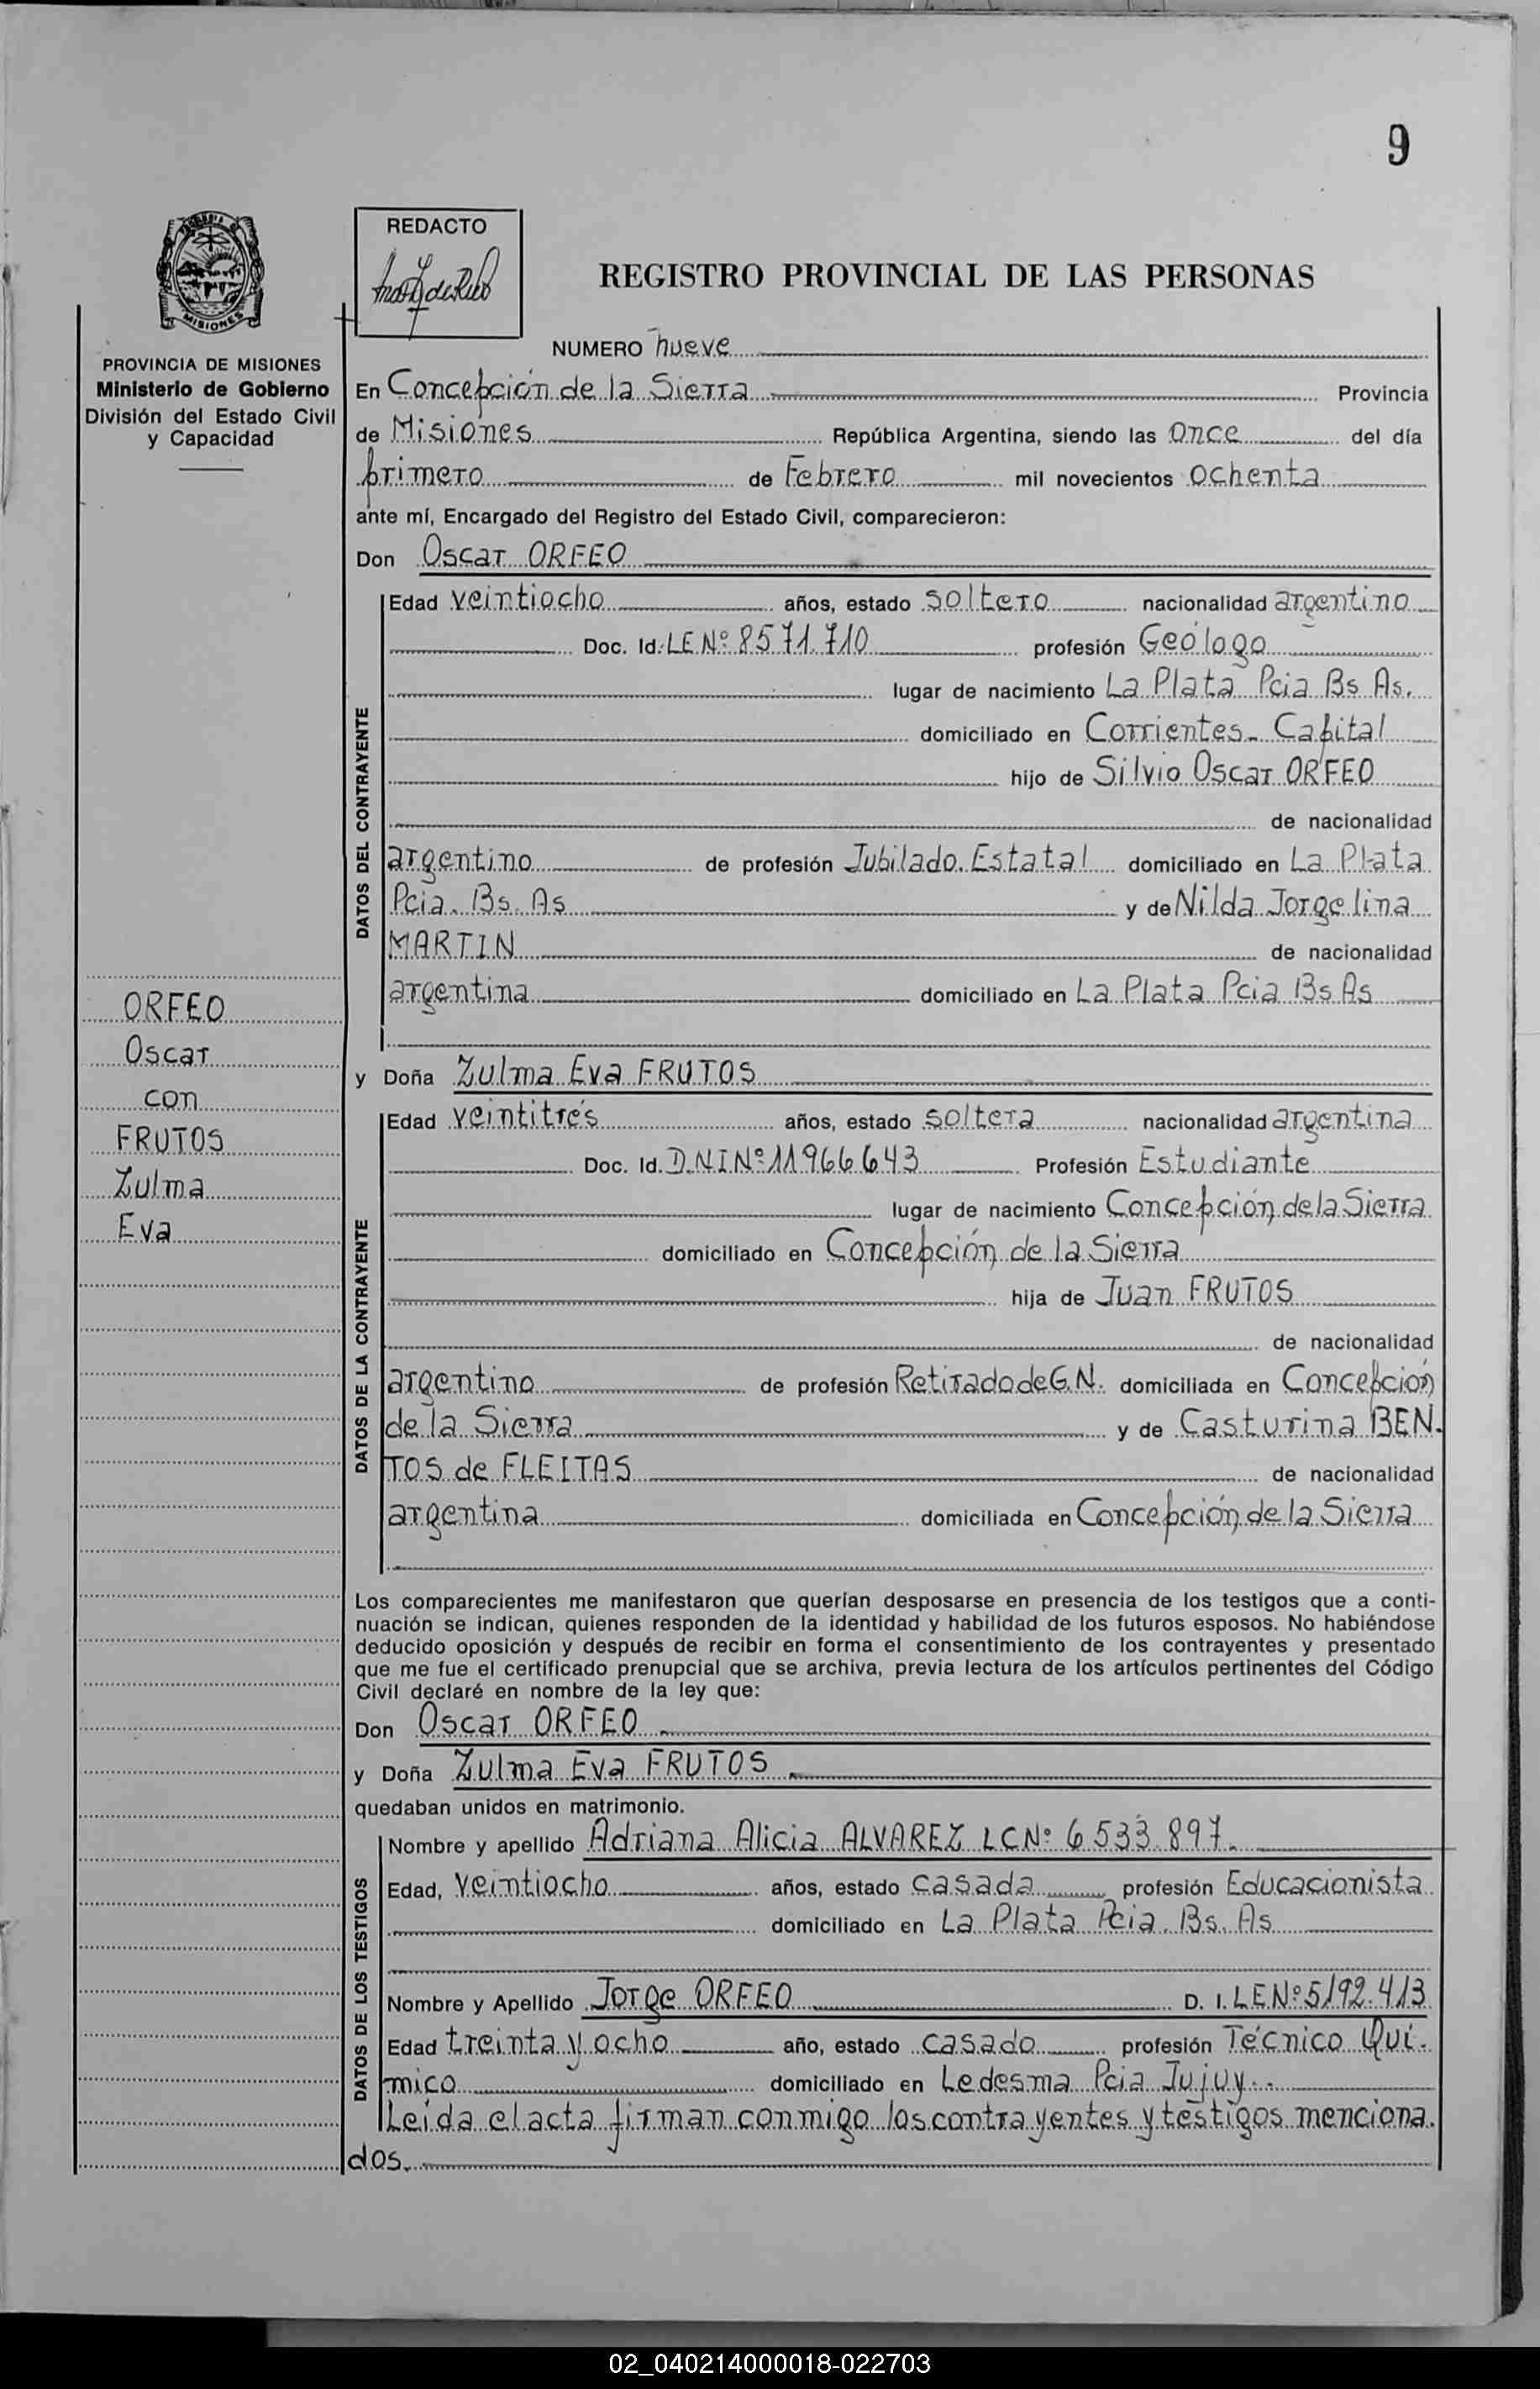 9
REDACTO
REGISTRO PROVINCIAL DE LAS PERSONAS
MISIONES
PROVINCIA DE MISIONES
Ministerio de Gobierno
División del Estado Civil
y Capacidad
NUMERO nueve
En Concepción de la Sierra Provincia
de Misiones República Argentina, siendo las once del día
primero de Febrero mil novecientos ochenta
ante mí, Encargado del Registro del Estado Civil, comparecieron:
Don Oscar ORFEO
DATOS DEL CONTRAYENTE
Edad veintiocho años, estado soltero nacionalidad argentino
Doc. Id. LE Nº 8571.710 profesión Geólogo
lugar de nacimiento La Plata Pcia Bs As.
domiciliado en Corrientes - Capital
hijo de Silvio Oscar ORFEO
de nacionalidad
argentino de profesión Jubilado Estatal domiciliado en La Plata
Pcia. Bs. As y de Nilda Jorgelina
MARTIN de nacionalidad
argentina domiciliado en La Plata Pcia Bs As
ORFEO
Oscar
con
FRUTOS
Zulma
Eva
y Doña Zulma Eva FRUTOS
DATOS DE LA CONTRAYENTE
Edad veintitrés años, estado soltera nacionalidad argentina
Doc. Id. D.N.I Nº 11966643 Profesión Estudiante
lugar de nacimiento Concepción de la Sierra
domiciliado en Concepción de la Sierra
hija de Juan FRUTOS
de nacionalidad
argentino de profesión Retirado de G.N. domiciliada en Concepción
de la Sierra y de Casturina BEN-
TOS de FLEITAS de nacionalidad
argentina domiciliada en Concepción de la Sierra
Los comparecientes me manifestaron que querían desposarse en presencia de los testigos que a conti-
nuación se indican, quienes responden de la identidad y habilidad de los futuros esposos. No habiéndose
deducido oposición y después de recibir en forma el consentimiento de los contrayentes y presentado
que me fue el certificado prenupcial que se archiva, previa lectura de los artículos pertinentes del Código
Civil declaré en nombre de la ley que:
Don Oscar ORFEO
y Doña Zulma Eva FRUTOS
quedaban unidos en matrimonio.
DATOS DE LOS TESTIGOS
Nombre y apellido Adriana Alicia ALVAREZ LC Nº 6533.897.
Edad, veintiocho años, estado casada profesión Educacionista
domiciliado en La Plata Pcia. Bs. As
Nombre y Apellido Jorge ORFEO D. I. LE Nº 5192.413
Edad treinta y ocho año, estado casado profesión Técnico Quí-
mico domiciliado en Ledesma Pcia Jujuy.-
Leída el acta firman conmigo los contrayentes y testigos menciona-
dos.
02_040214000018-022703